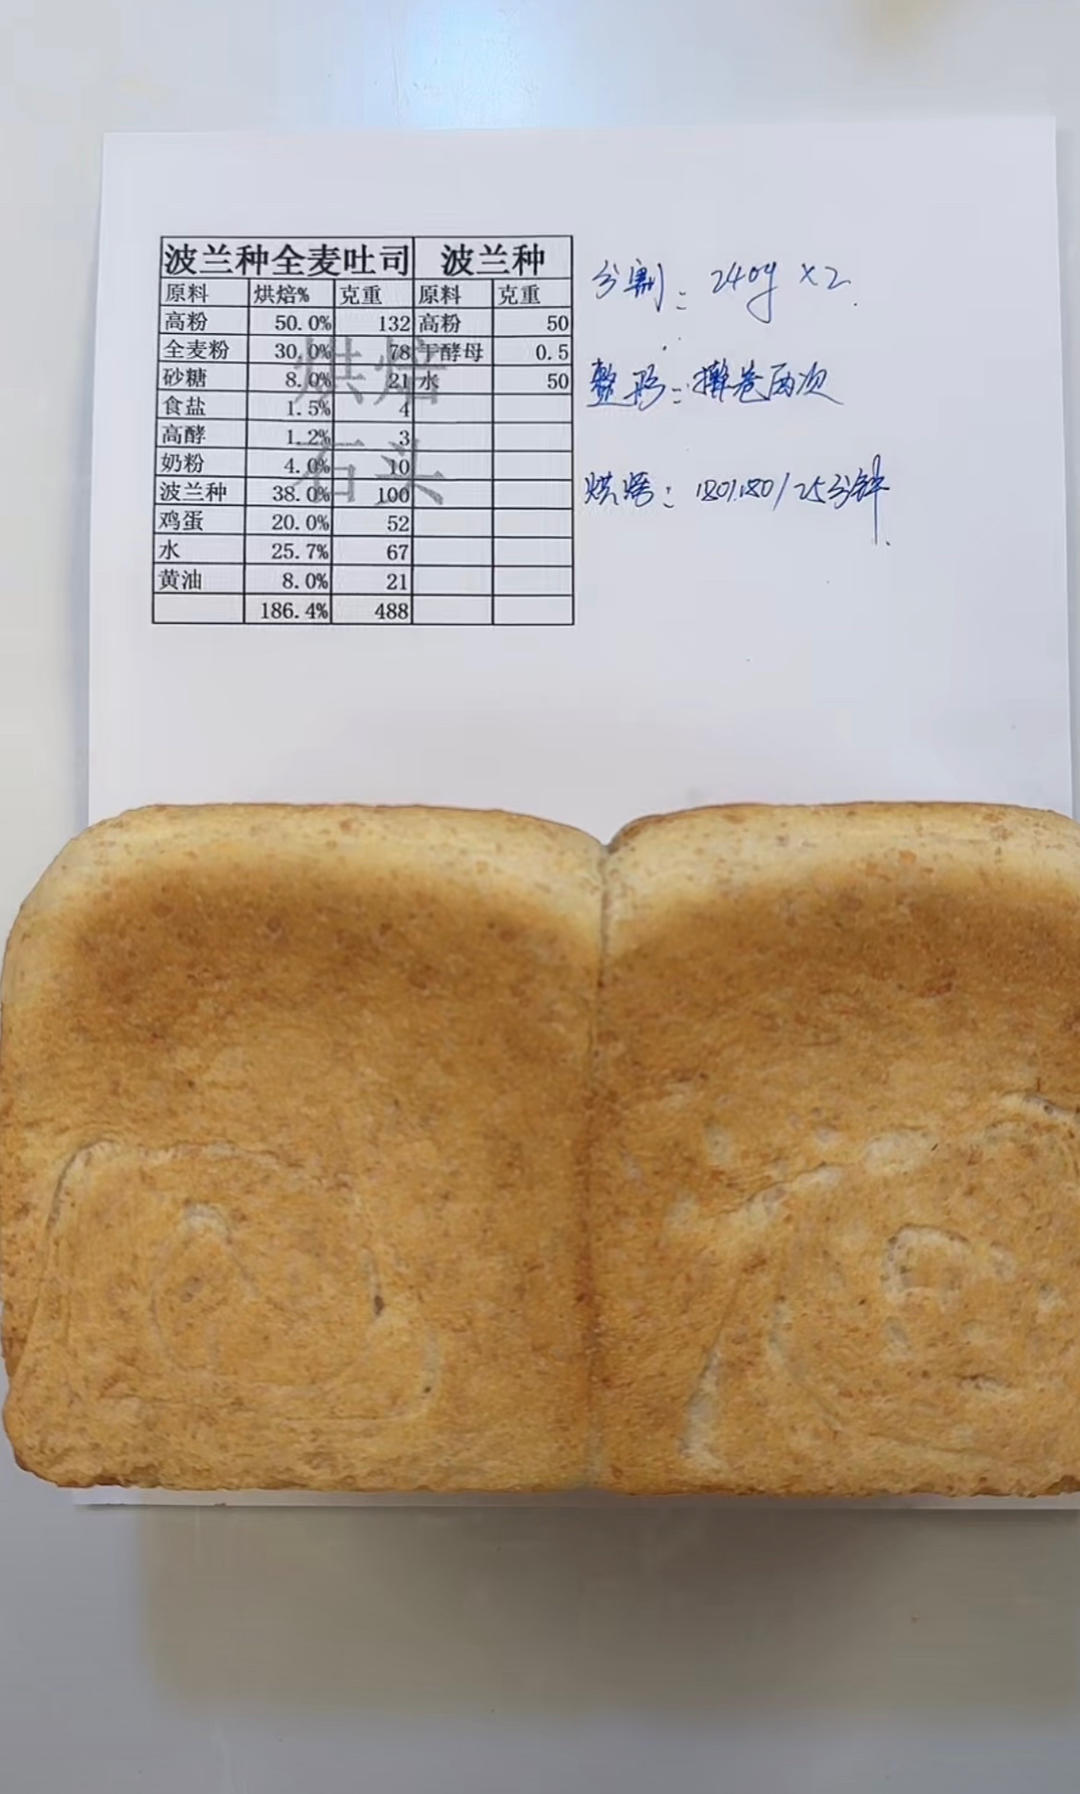 波兰种全麦吐司 波兰种
原料 烘焙% 克重 原料 克重
高粉 50.0% 132 高粉 50
全麦粉 30.0% 78 干酵母 0.5
砂糖 8.0% 21 水 50
食盐 1.5% 4
高酵 1.2% 3
奶粉 4.0% 10
波兰种 38.0% 100
鸡蛋 20.0% 52
水 25.7% 67
黄油 8.0% 21
186.4% 488
烘焙
石头
分割：240g ×2.
整形：擀卷两次
烘烤：180/180/25分钟.